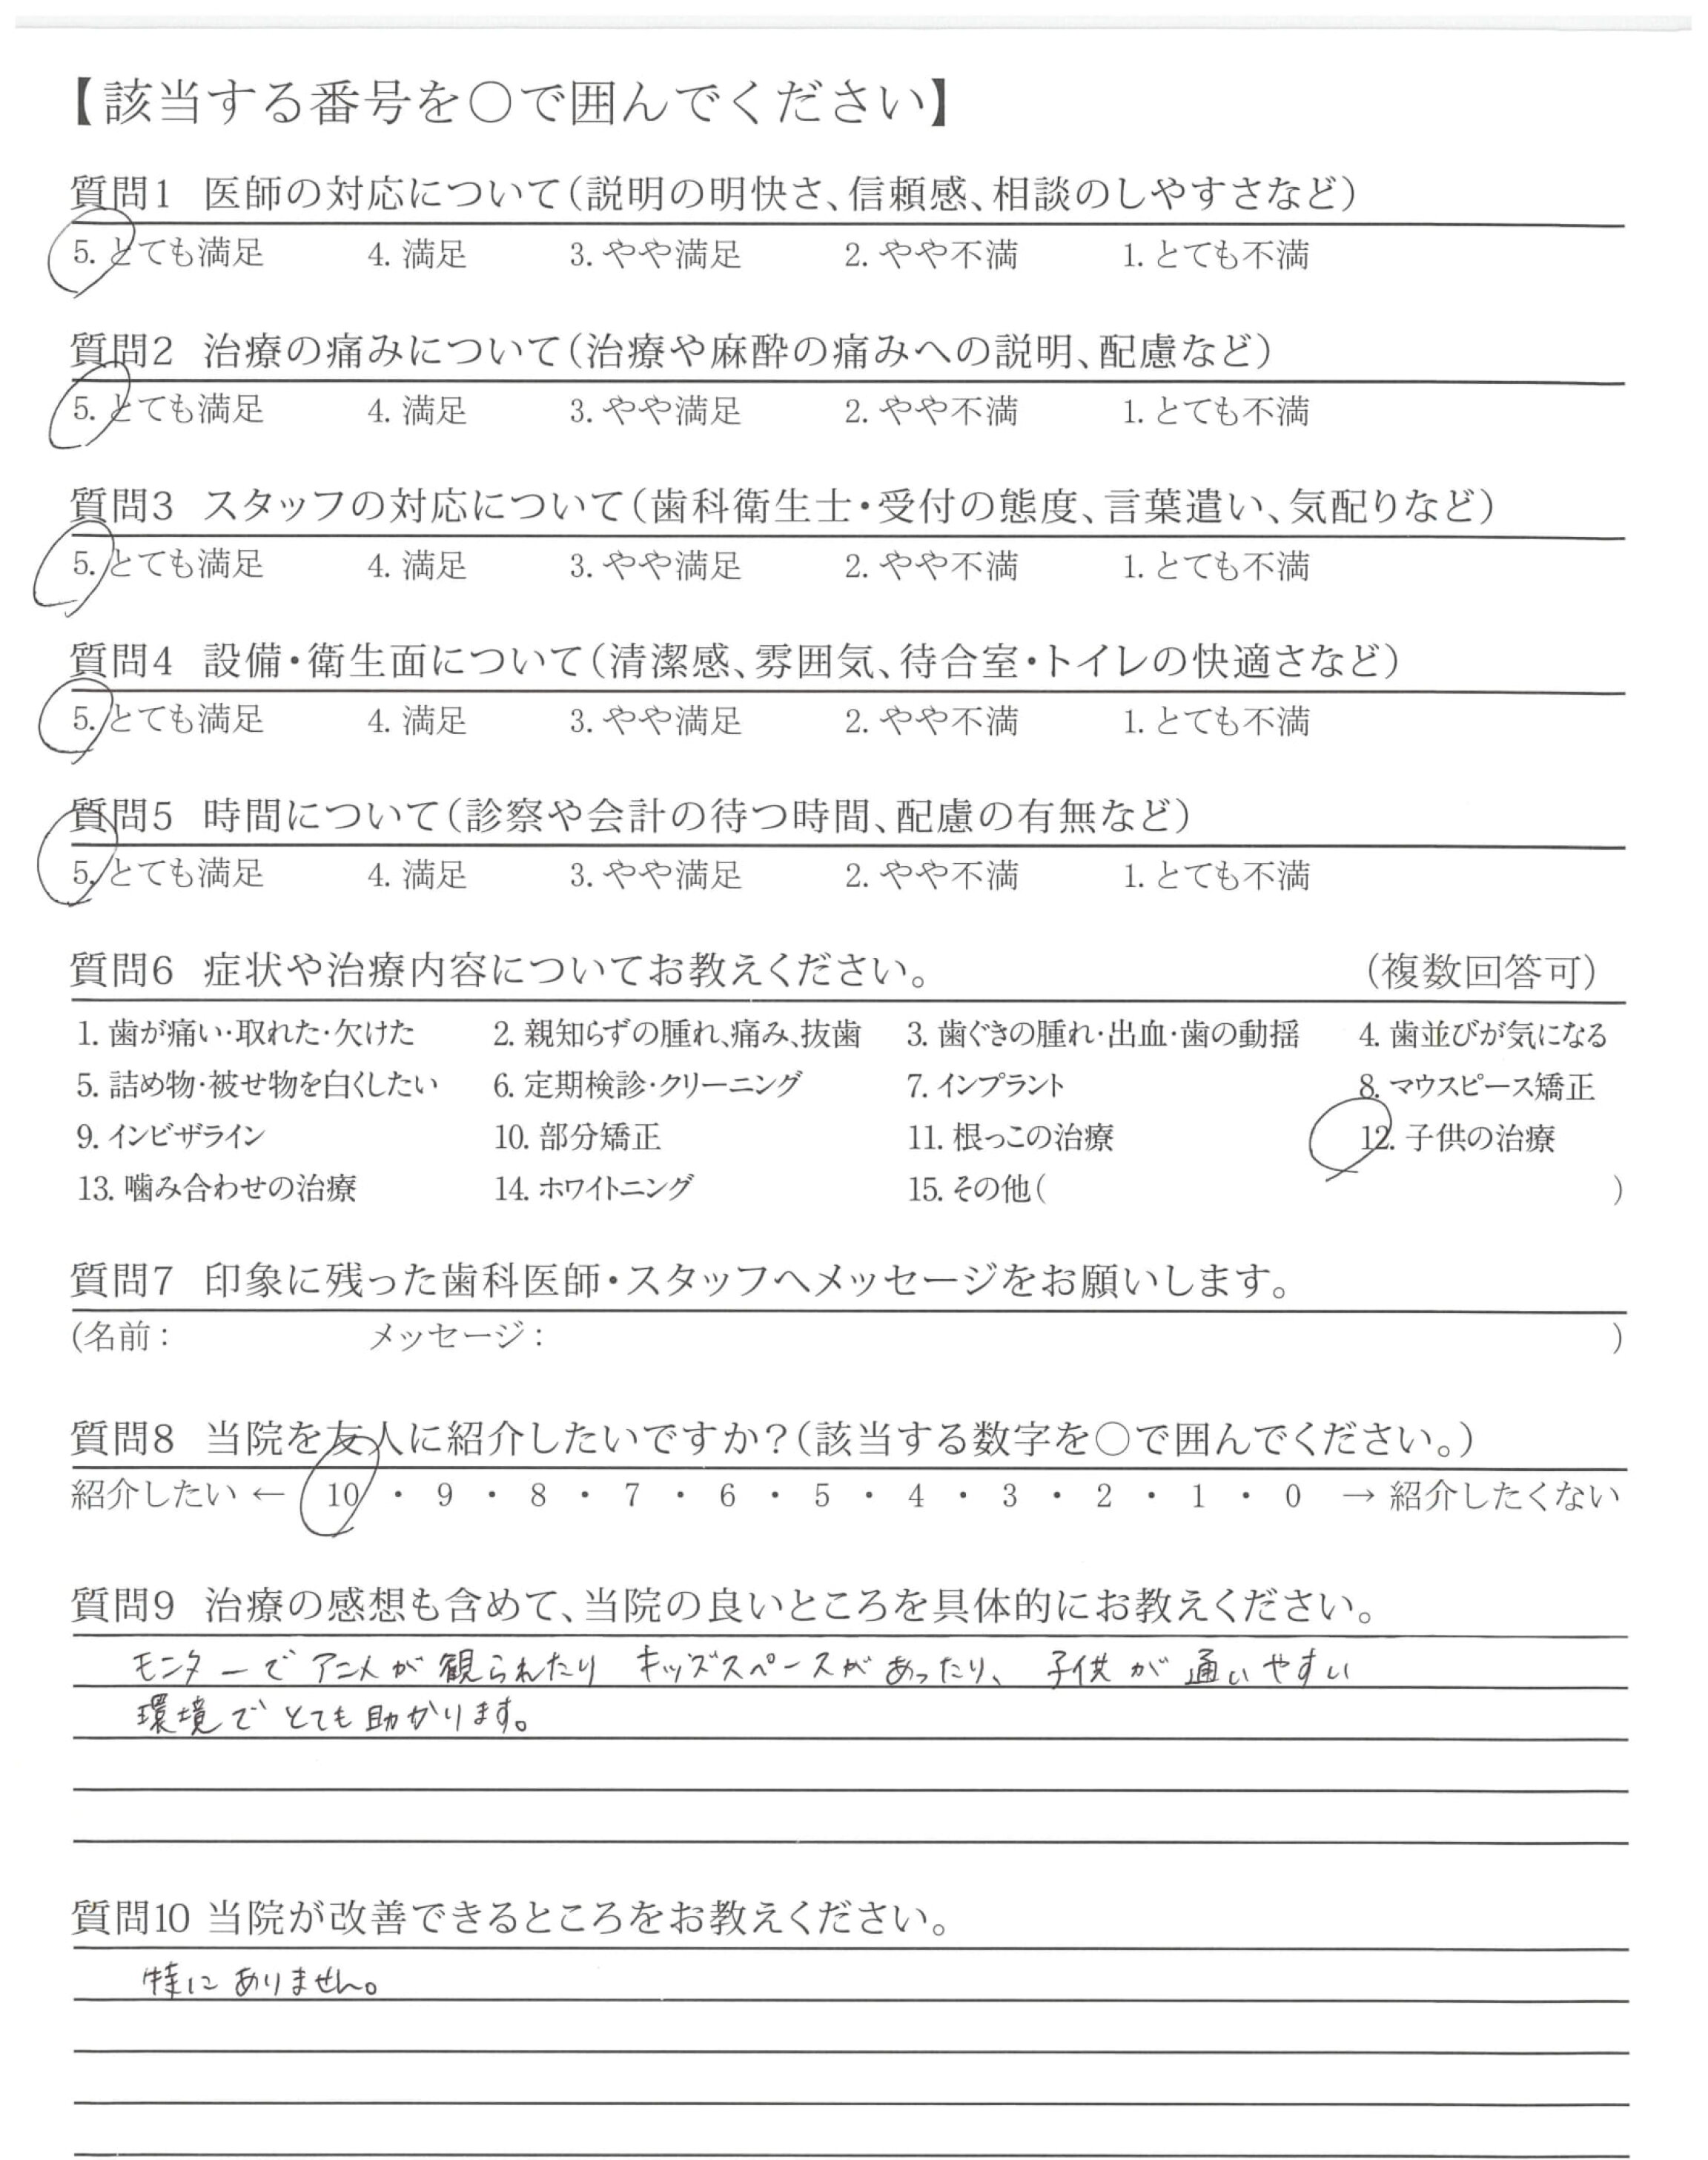 【該当する番号を○で囲んでください】
質問1 医師の対応について(説明の明快さ、信頼感、相談のしやすさなど)
5. とても満足 4. 満足 3. やや満足 2. やや不満 1. とても不満
質問2 治療の痛みについて(治療や麻酔の痛みへの説明、配慮など)
5. とても満足 4. 満足 3. やや満足 2. やや不満 1. とても不満
質問3 スタッフの対応について(歯科衛生士・受付の態度、言葉遣い、気配りなど)
5. とても満足 4. 満足 3. やや満足 2. やや不満 1. とても不満
質問4 設備・衛生面について(清潔感、雰囲気、待合室・トイレの快適さなど)
5. とても満足 4. 満足 3. やや満足 2. やや不満 1. とても不満
質問5 時間について(診察や会計の待つ時間、配慮の有無など)
5. とても満足 4. 満足 3. やや満足 2. やや不満 1. とても不満
質問6 症状や治療内容についてお教えください。 (複数回答可)
1. 歯が痛い・取れた・欠けた 2. 親知らずの腫れ、痛み、抜歯 3. 歯ぐきの腫れ・出血・歯の動揺 4. 歯並びが気になる
5. 詰め物・被せ物を白くしたい 6. 定期検診・クリーニング 7. インプラント 8. マウスピース矯正
9. インビザライン 10. 部分矯正 11. 根っこの治療 12. 子供の治療
13. 噛み合わせの治療 14. ホワイトニング 15. その他( )
質問7 印象に残った歯科医師・スタッフへメッセージをお願いします。
(名前: メッセージ: )
質問8 当院を友人に紹介したいですか?(該当する数字を○で囲んでください。)
紹介したい ← 10 ・ 9 ・ 8 ・ 7 ・ 6 ・ 5 ・ 4 ・ 3 ・ 2 ・ 1 ・ 0 → 紹介したくない
質問9 治療の感想も含めて、当院の良いところを具体的にお教えください。
モニターでアニメが観られたり キッズスペースがあったり、子供が通いやすい
環境でとても助かります。
質問10 当院が改善できるところをお教えください。
特にありません。